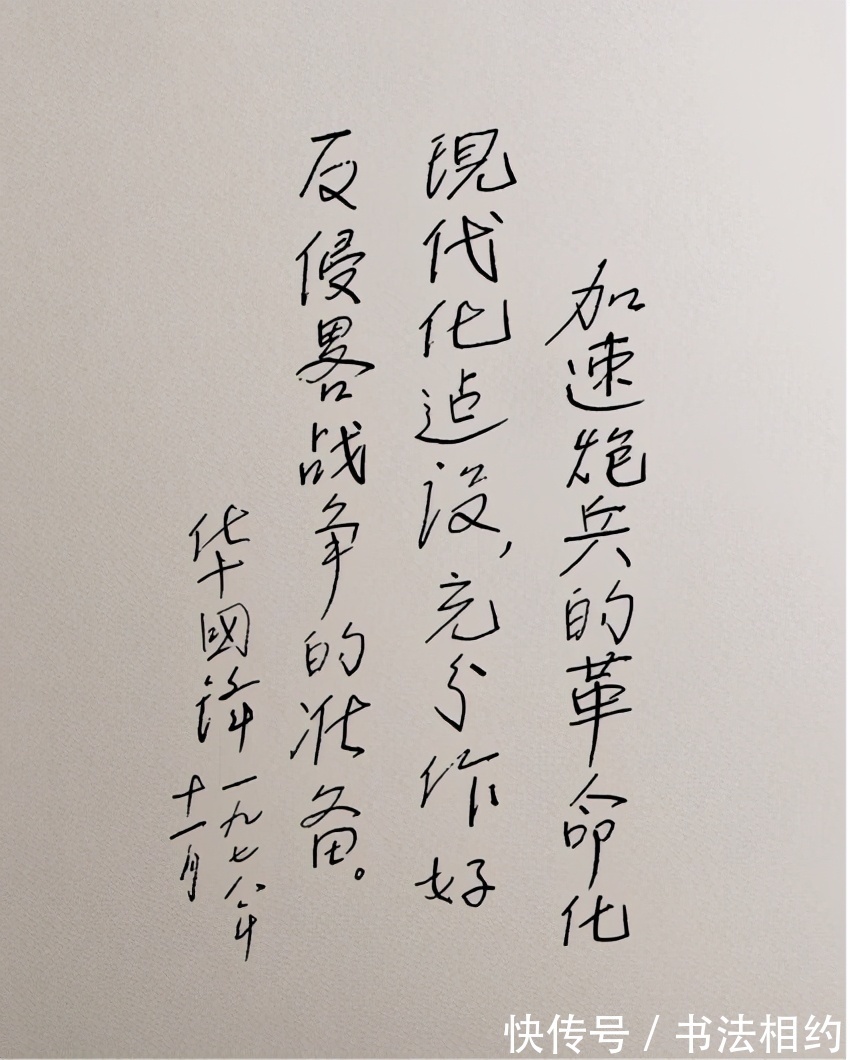 加速炮兵的革命化
現代化建设,充分作好
反侵畧战争的准备。
华國锋一九七八年
十一月
快传号/书法相约